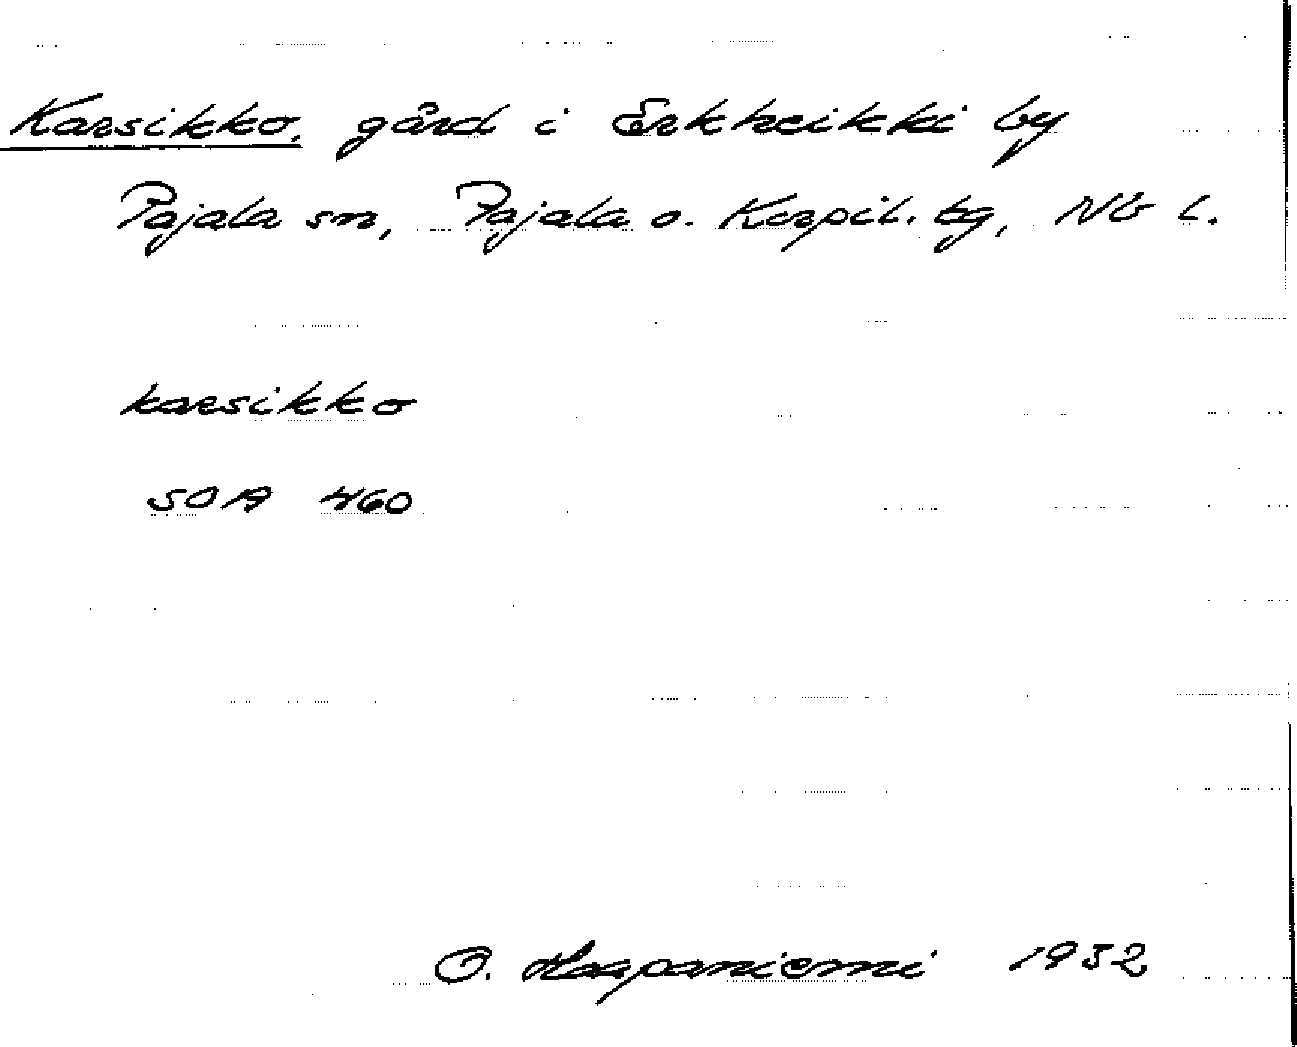 Karsikko, gård i Erkheikki by
Pajala sn, Pajala o. Korpil. tg, Nb l.
karsikko
SOA 460
O. Haapaniemi 1932